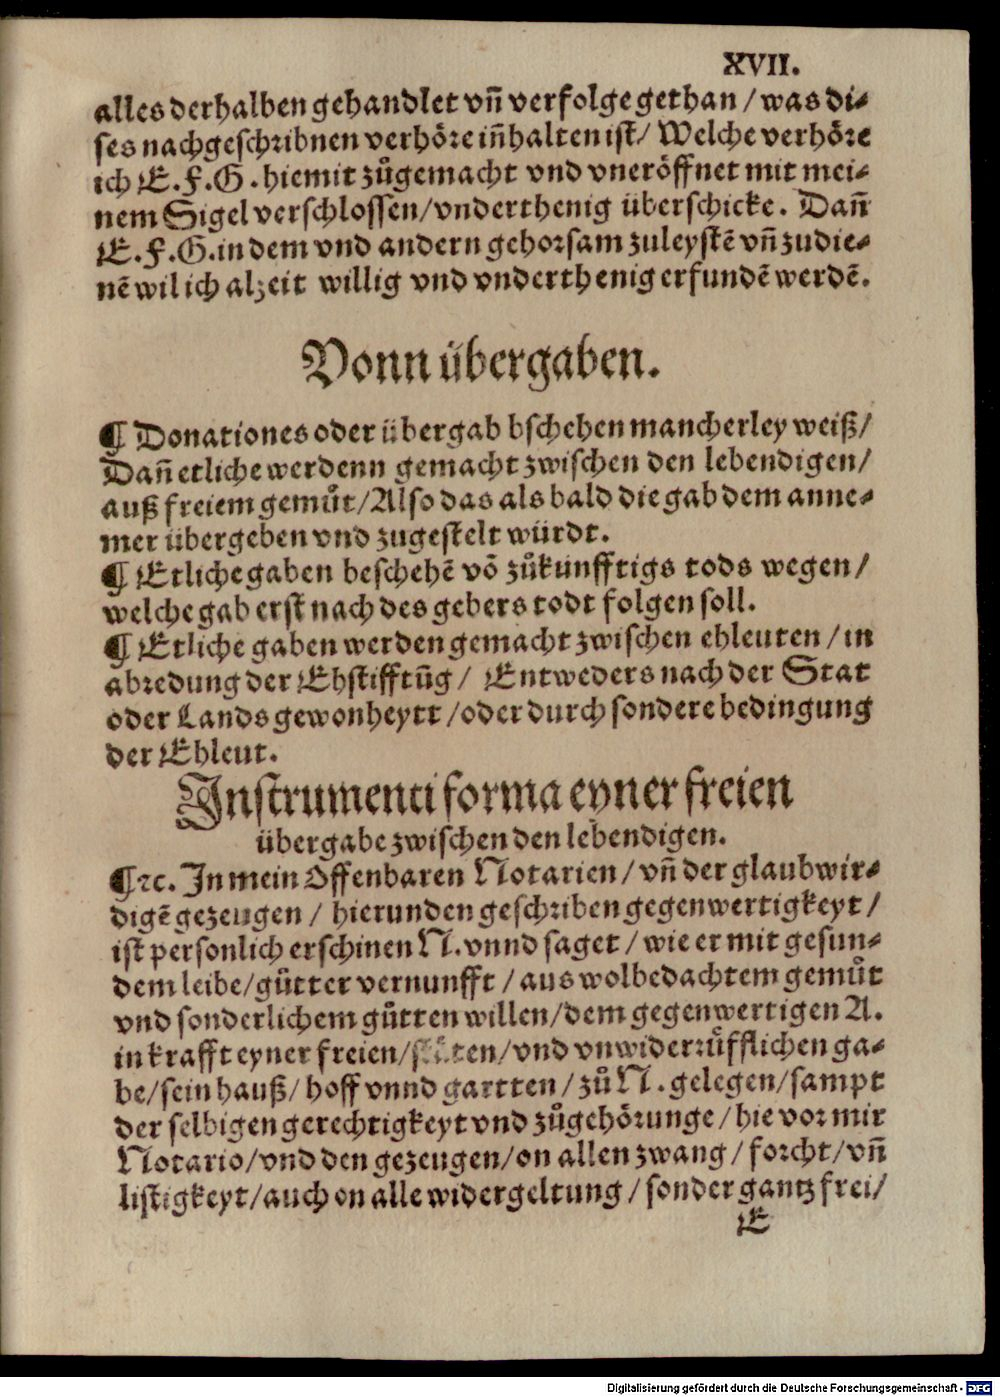 XVII.
alles derhalben gehandlet vn̄ verfolge gethan / was di-
ses nachgeschribnen verhöre in̄halten ist / Welche verhöre
ich E. F. G. hiemit zůgemacht vnd vneröffnet mit mei-
nem Sigel verschlossen / vnderthenig überschicke. Dan̄
E. F. G. in dem vnd andern gehorsam zuleystē vn̄ zudie-
nē wil ich alzeit willig vnd vnderthenig erfundē werdē.
Vonn übergaben.
¶ Donationes oder übergab bschehen mancherley weiß /
Dan̄ etliche werdenn gemacht zwischen den lebendigen /
auß freiem gemůt / Also das als bald die gab dem anne-
mer übergeben vnd zugestelt würdt.
¶ Etliche gaben beschehē vō zůkunfftigs tods wegen /
welche gab erst nach des gebers todt folgen soll.
¶ Etliche gaben werden gemacht zwischen ehleuten / in
abredung der Ehstifftūg / Entweders nach der Stat
oder Lands gewonheytt / oder durch sondere bedingung
der Ehleut.
Instrumenti forma eyner freien
übergabe zwischen den lebendigen.
¶ ꝛc. In mein offenbaren Notarien / vn̄ der glaubwir-
digē gezeugen / hierunden geschriben gegenwertigkeyt /
ist personlich erschinen N. vnnd saget / wie er mit gesun-
dem leibe / gůtter vernunfft / aus wolbedachtem gemůt
vnd sonderlichem gůtten willen / dem gegenwertigen A.
in krafft eyner freien / vnd vnwiderrůfflichen ga-
be / sein hauß / hoff vnnd gartten / zů N. gelegen / sampt
der selbigen gerechtigkeyt vnd zůgehörunge / hie vor mir
Notario / vnd den gezeugen / on allen zwang / forcht / vn̄
listigkeyt / auch on alle widergeltung / sonder gantz frei /
E
Digitalisierung gefördert durch die Deutsche Forschungsgemeinschaft - DFG